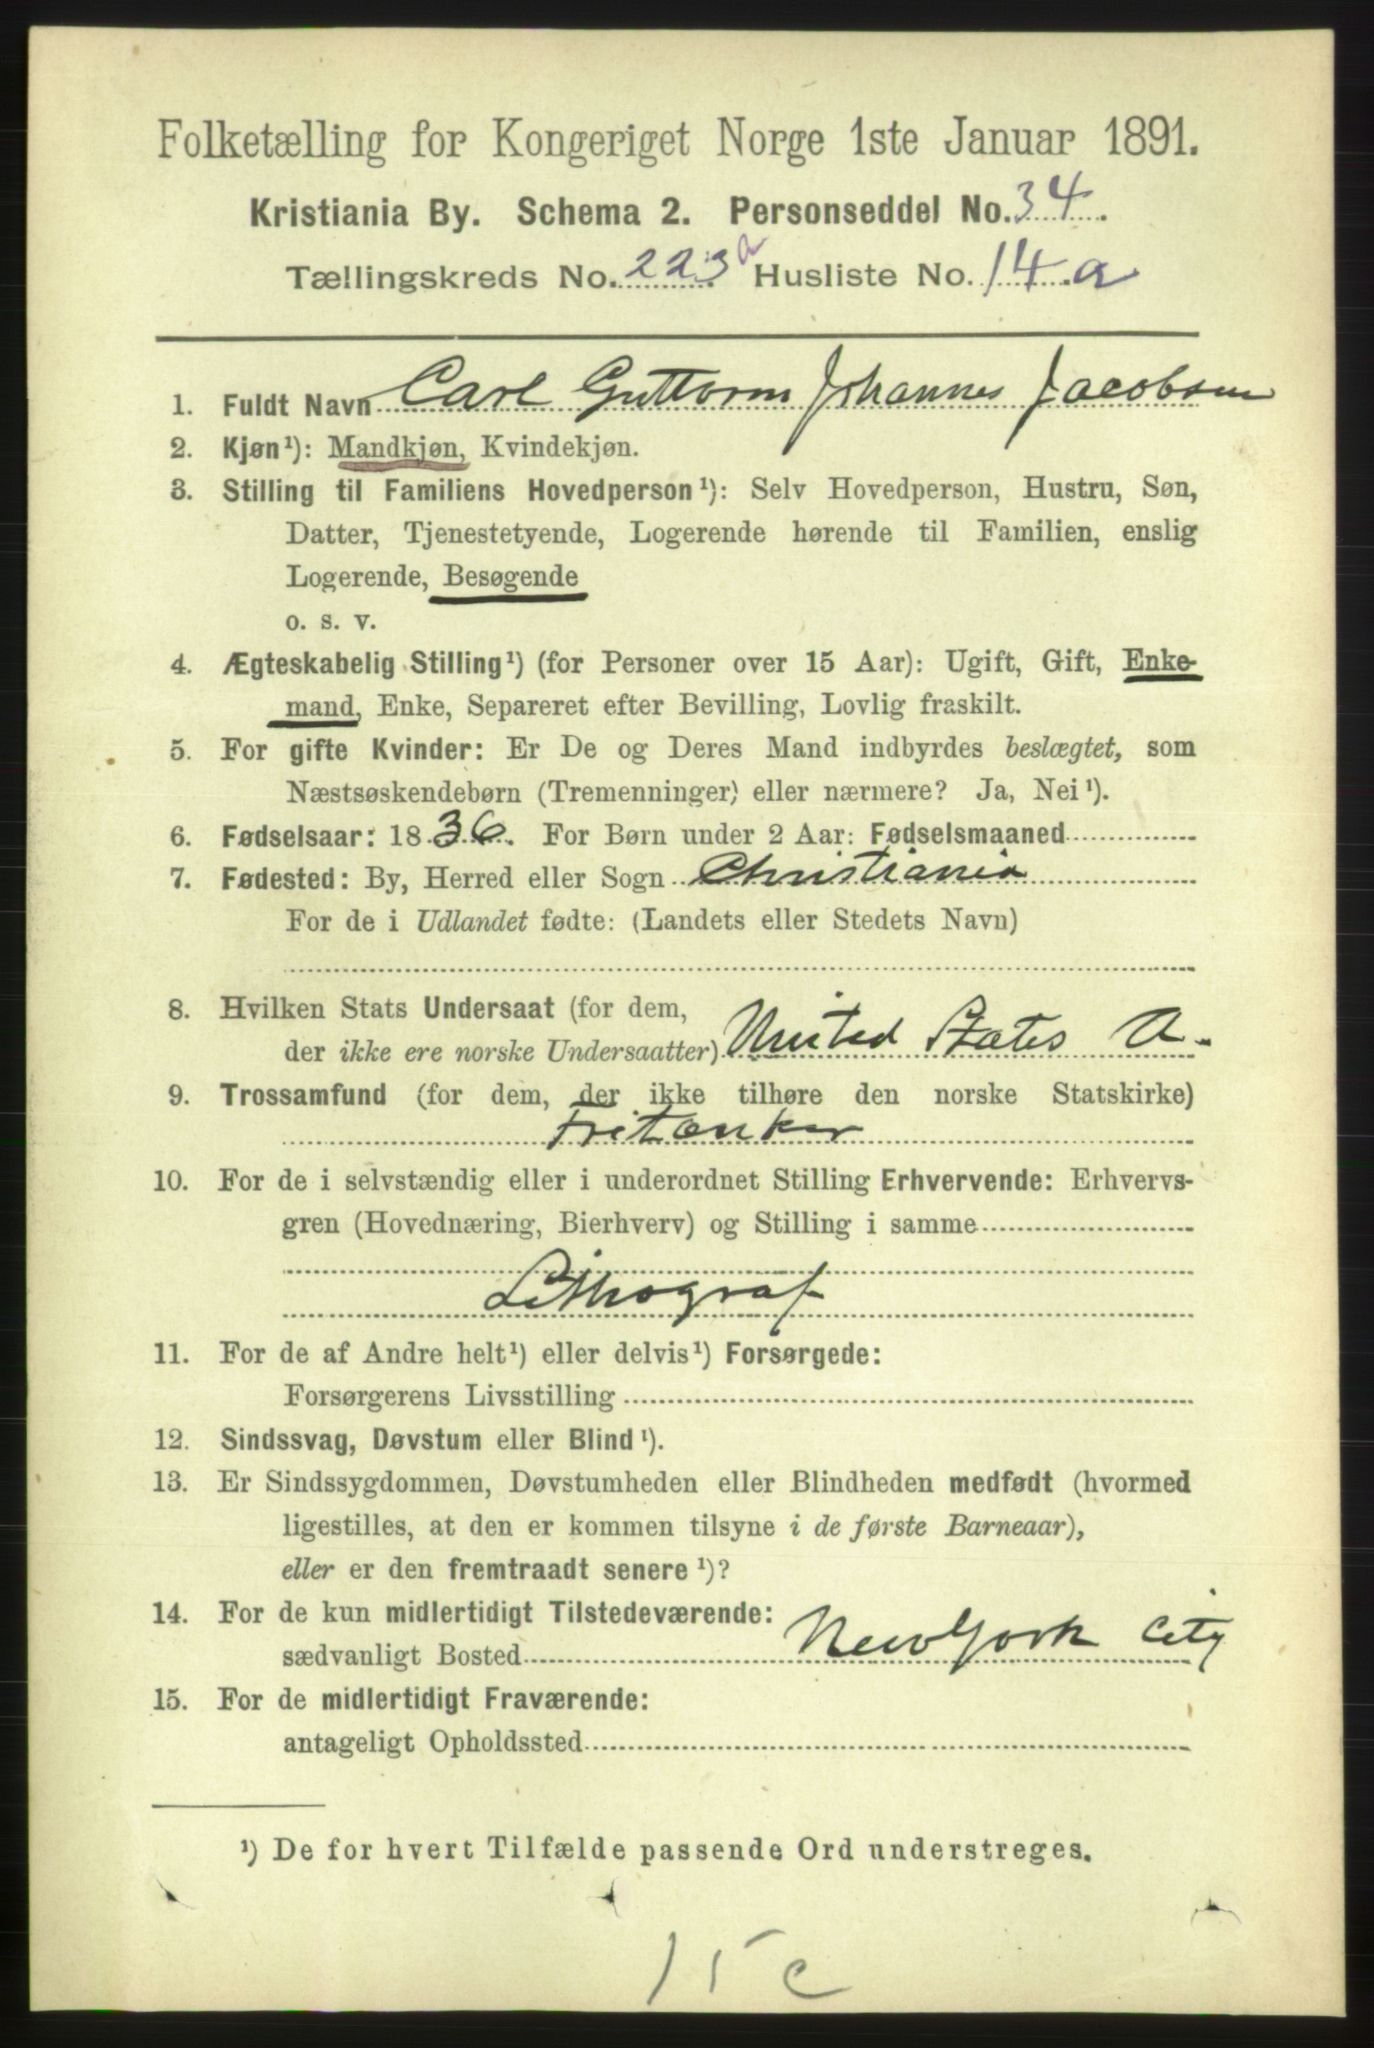 Folketælling for Kongeriget Norge 1ste Januar 1891.
Kristiania By. Schema 2. Personseddel No. 34.
Tællingskreds No. 223a Husliste No. 14.a
1. Fuldt Navn Carl Guttorm Johannes Jacobsen
2. Kjøn¹): Mandkjøn, Kvindekjøn.
3. Stilling til Familiens Hovedperson¹): Selv Hovedperson, Hustru, Søn,
Datter, Tjenestetyende, Logerende hørende til Familien, enslig
Logerende, Besøgende
o. s. v.
4. Ægteskabelig Stilling¹) (for Personer over 15 Aar): Ugift, Gift, Enke-
mand, Enke, Separeret efter Bevilling, Lovlig fraskilt.
5. For gifte Kvinder: Er De og Deres Mand indbyrdes beslægtet, som
Næstsøskendebørn (Tremenninger) eller nærmere? Ja, Nei¹).
6. Fødselsaar: 1836. For Børn under 2 Aar: Fødselsmaaned
7. Fødested: By, Herred eller Sogn Christiania
For de i Udlandet fødte: (Landets eller Stedets Navn)
8. Hvilken Stats Undersaat (for dem,
der ikke ere norske Undersaatter) United States A.
9. Trossamfund (for dem, der ikke tilhøre den norske Statskirke)
Fritænker
10. For de i selvstændig eller i underordnet Stilling Erhvervende: Erhvervs-
gren (Hovednæring, Bierhverv) og Stilling i samme
Lithograf
11. For de af Andre helt¹) eller delvis¹) Forsørgede:
Forsørgerens Livsstilling
12. Sindssvag, Døvstum eller Blind¹).
13. Er Sindssygdommen, Døvstumheden eller Blindheden medfødt (hvormed
ligestilles, at den er kommen tilsyne i de første Barneaar),
eller er den fremtraadt senere¹)?
14. For de kun midlertidigt Tilstedeværende:
sædvanligt Bosted New York City
15. For de midlertidigt Fraværende:
antageligt Opholdssted
¹) De for hvert Tilfælde passende Ord understreges.
15 c